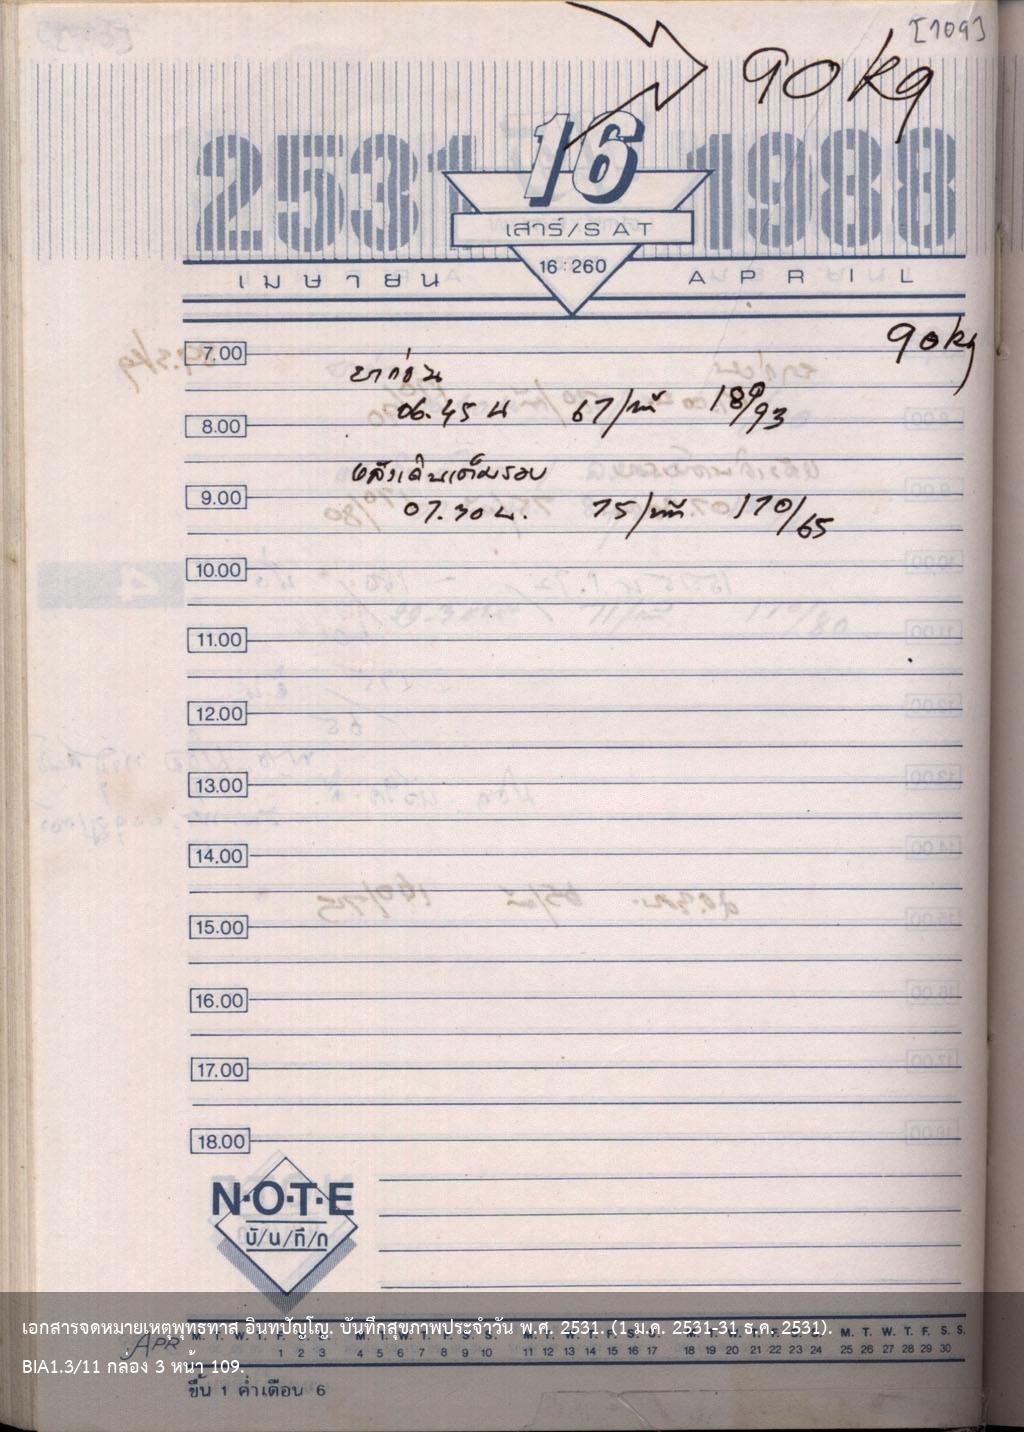 [109]
90 kg
2531 16 1988
เสาร์/SAT
16:260
เมษายน APRIL
90 kg
7.00
ยาก่อน
06.45 น 67/นที 189/93
8.00
หลังเดินเต็มรอบ
9.00
07.30 น. 75/นที 170/65
10.00
11.00
12.00
13.00
14.00
15.00
16.00
17.00
18.00
N·O·T·E
บั/น/ทึ/ก
เอกสารจดหมายเหตุพุทธทาส อินทปัญโญ. บันทึกสุขภาพประจำวัน พ.ศ. 2531. (1 ม.ค. 2531-31 ธ.ค. 2531).
APR M. T. W. T. F. S. S. M. T. W. T. F. S. S. M. T. W. T. F. S. S. M. T. W. T. F. S. S. M. T. W. T. F. S. S.
1 2 3 4 5 6 7 8 9 10 11 12 13 14 15 16 17 18 19 20 21 22 23 24 25 26 27 28 29 30
BIA1.3/11 กล่อง 3 หน้า 109.
ขึ้น 1 ค่ำเดือน 6